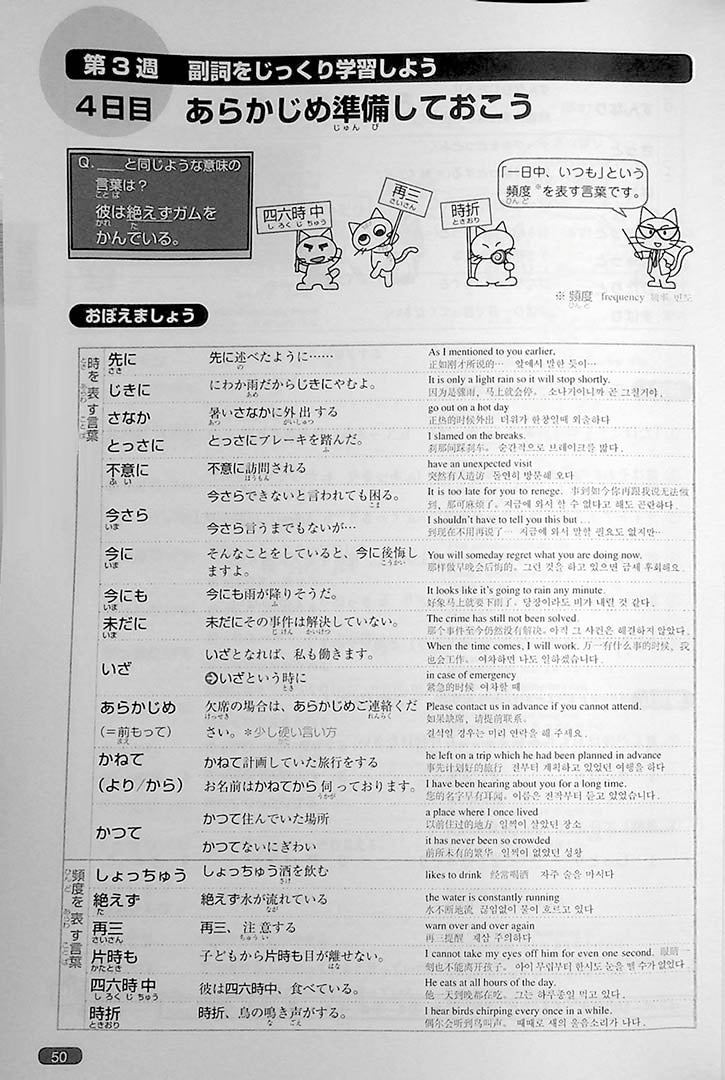 第3週 副詞をじっくり学習しよう
4日目 あらかじめ準備しておこう
じゅん び
Q.____と同じような意味の
言葉は？
ことば
彼は絶えずガムを
かれ た
かんでいる。
四六時中
しろくじちゅう
再三
さいさん
時折
ときおり
「一日中、いつも」という
頻度※を表す言葉です。
ひんど
※ 頻度 frequency 频率 빈도
ひんど
おぼえましょう
時を表す言葉
とき あらわ ことば
先に
さき
先に述べたように……
の
As I mentioned to you earlier,
正如刚才所说的… 앞에서 말한 듯이…
じきに
にわか雨だからじきにやむよ。
あめ
It is only a light rain so it will stop shortly.
因为是骤雨，马上就会停。 소나기이니까 곧 그칠거야.
さなか
暑いさなかに外出する
あつ がいしゅつ
go out on a hot day
正热的时候外出 더위가 한창일때 외출하다
とっさに
とっさにブレーキを踏んだ。
ふ
I slamed on the breaks.
刹那间踩刹车。 순간적으로 브레이크를 밟다.
不意に
ふい
不意に訪問される
ほうもん
have an unexpected visit
突然有人造访 돌연히 방문해 오다
今さら
いま
今さらできないと言われても困る。
こま
It is too late for you to renege. 事到如今你再跟我说无法做
到，那可麻烦了。 지금에 와서 할 수 없다고 해도 곤란하다.
今さら言うまでもないが…
I shouldn't have to tell you this but …
到现在不用再说了… 지금에 와서 말할 필요도 없지만…
今に
いま
そんなことをしていると、今に後悔し
こうかい
ますよ。
You will someday regret what you are doing now.
那样做早晚会后悔的。 그런 것을 하고 있으면 금세 후회해요.
今にも
いま
今にも雨が降りそうだ。
ふ
It looks like it's going to rain any minute.
好象马上就要下雨了。 당장이라도 비가 내릴 것 같다.
未だに
いま
未だにその事件は解決していない。
じけん かいけつ
The crime has still not been solved.
那个事件至今仍然没有解决。 아직 그 사건은 해결하지 않았다.
いざ
いざとなれば、私も働きます。
When the time comes, I will work. 万一有什么事的时候，我
也会工作。 여차하면 나도 일하겠습니다.
➔いざという時に
とき
in case of emergency
紧急的时候 여차할 때
あらかじめ
（＝前もって）
まえ
欠席の場合は、あらかじめご連絡くだ
けっせき れんらく
さい。＊少し硬い言い方
かた
Please contact us in advance if you cannot attend.
如果缺席，请提前联系。
결석일 경우는 미리 연락을 해 주세요.
かねて
（より／から）
かねて計画していた旅行をする
he left on a trip which he had been planned in advance
事先计划好的旅行 전부터 계획하고 있었던 여행을 하다
お名前はかねてから伺っております。
うかが
I have been hearing about you for a long time.
您的名字早有耳闻。 이름은 전작부터 듣고 있었습니다.
かつて
かつて住んでいた場所
a place where I once lived
以前住过的地方 일찍이 살았던 장소
かつてないにぎわい
it has never been so crowded
前所未有的繁华 일찍이 없었던 성황
頻度を表す言葉
ひんど あらわ ことば
しょっちゅう
しょっちゅう酒を飲む
さけ
likes to drink 经常喝酒 자주 술을 마시다
絶えず
た
絶えず水が流れている
なが
the water is constantly running
水不断地流 끊임없이 물이 흐르고 있다
再三
さいさん
再三、注意する
ちゅうい
warn over and over again
再三提醒 재삼 주의하다
片時も
かたとき
子どもから片時も目が離せない。
はな
I cannot take my eyes off him for even one second. 眼睛一
刻也不能离开孩子。 아이 무립부터 한시도 눈을 뗄 수가 없었다
四六時中
しろくじちゅう
彼は四六時中、食べている。
He eats at all hours of the day.
他一天到晚都在吃。 그는 하루종일 먹고 있다.
時折
ときおり
時折、鳥の鳴き声がする。
な ごえ
I hear birds chirping every once in a while.
偶尔会听到鸟叫声。 때때로 새의 울음소리가 나다.
50